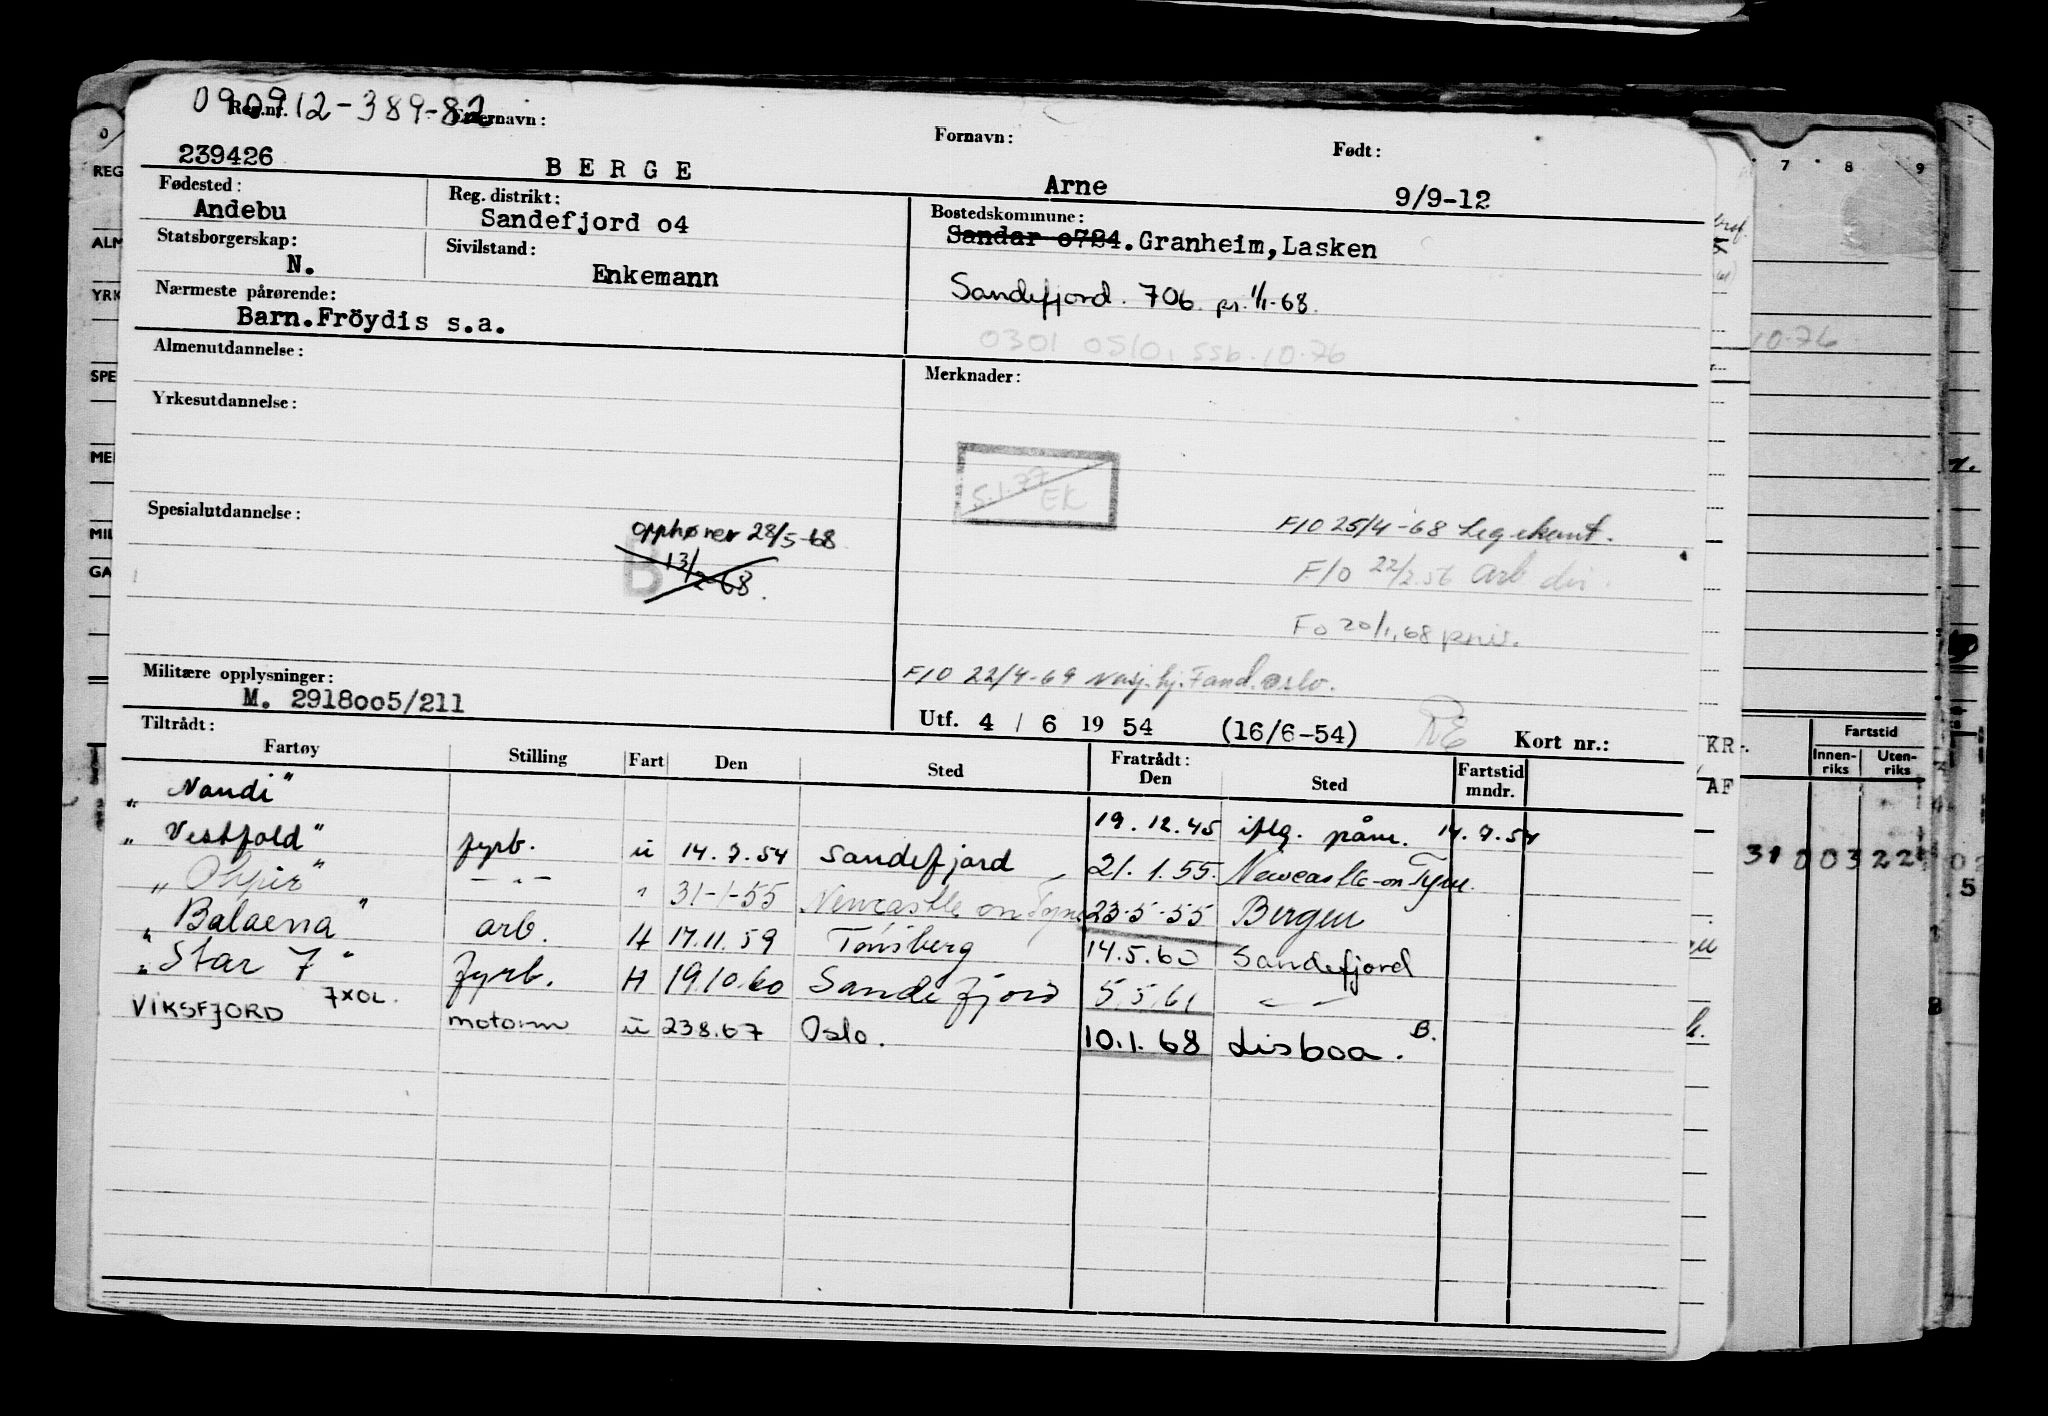 090912-389-82
Reg.nr. Etternavn: Fornavn: Født:
239426 BERGE Arne 9/9-12
Fødested: Reg. distrikt: Bostedskommune:
Andebu Sandefjord o4 Sandar o724. Granheim, Lasken
Statsborgerskap: Sivilstand:
N. Enkemann Sandefjord. 706 pr. 1/1-68.
Nærmeste pårørende:
Barn. Fröydis s.a.
0301 0510, ssb. 10.76
Almenutdannelse: Merknader:
Yrkesutdannelse:
5.1.77 EK
Spesialutdannelse:
opphører 28/5-68
B 13/2-68.
F/O 25/4-68 Leg.
F/O 22/2.56 Arb dir.
Fo 20/1.68
Militære opplysninger: F/O 22/4-69 Oslo.
M. 2918oo5/211
Utf. 4 / 6 19 54 (16/6-54) Kort nr.:
Tiltrådt: Fratrådt:
Fartøy Stilling Fart Den Sted Den Sted Fartstid mndr.
"Nandi" 19.12.45 iflg. påm. 14.7.54
"Vestfold" fyrb. u 14.7.54 Sandefjord 21.1.55. Newcastle-on Tyne.
" " —"— " 31-1-55 Newcastle on Tyne 23.5.55 Bergen
"Balaena" arb. H 17.11.59 Tønsberg 14.5.60 Sandefjord
"Star 7" fyrb. H 19.10.60 Sandefjord 5.5.61 —"—
VIKSFJORD 7XOL. motorm u 23.8.67 Oslo. 10.1.68 Lisboa. B.
7 8 9
10.76
Fartstid
Innenriks Utenriks
KR
AF